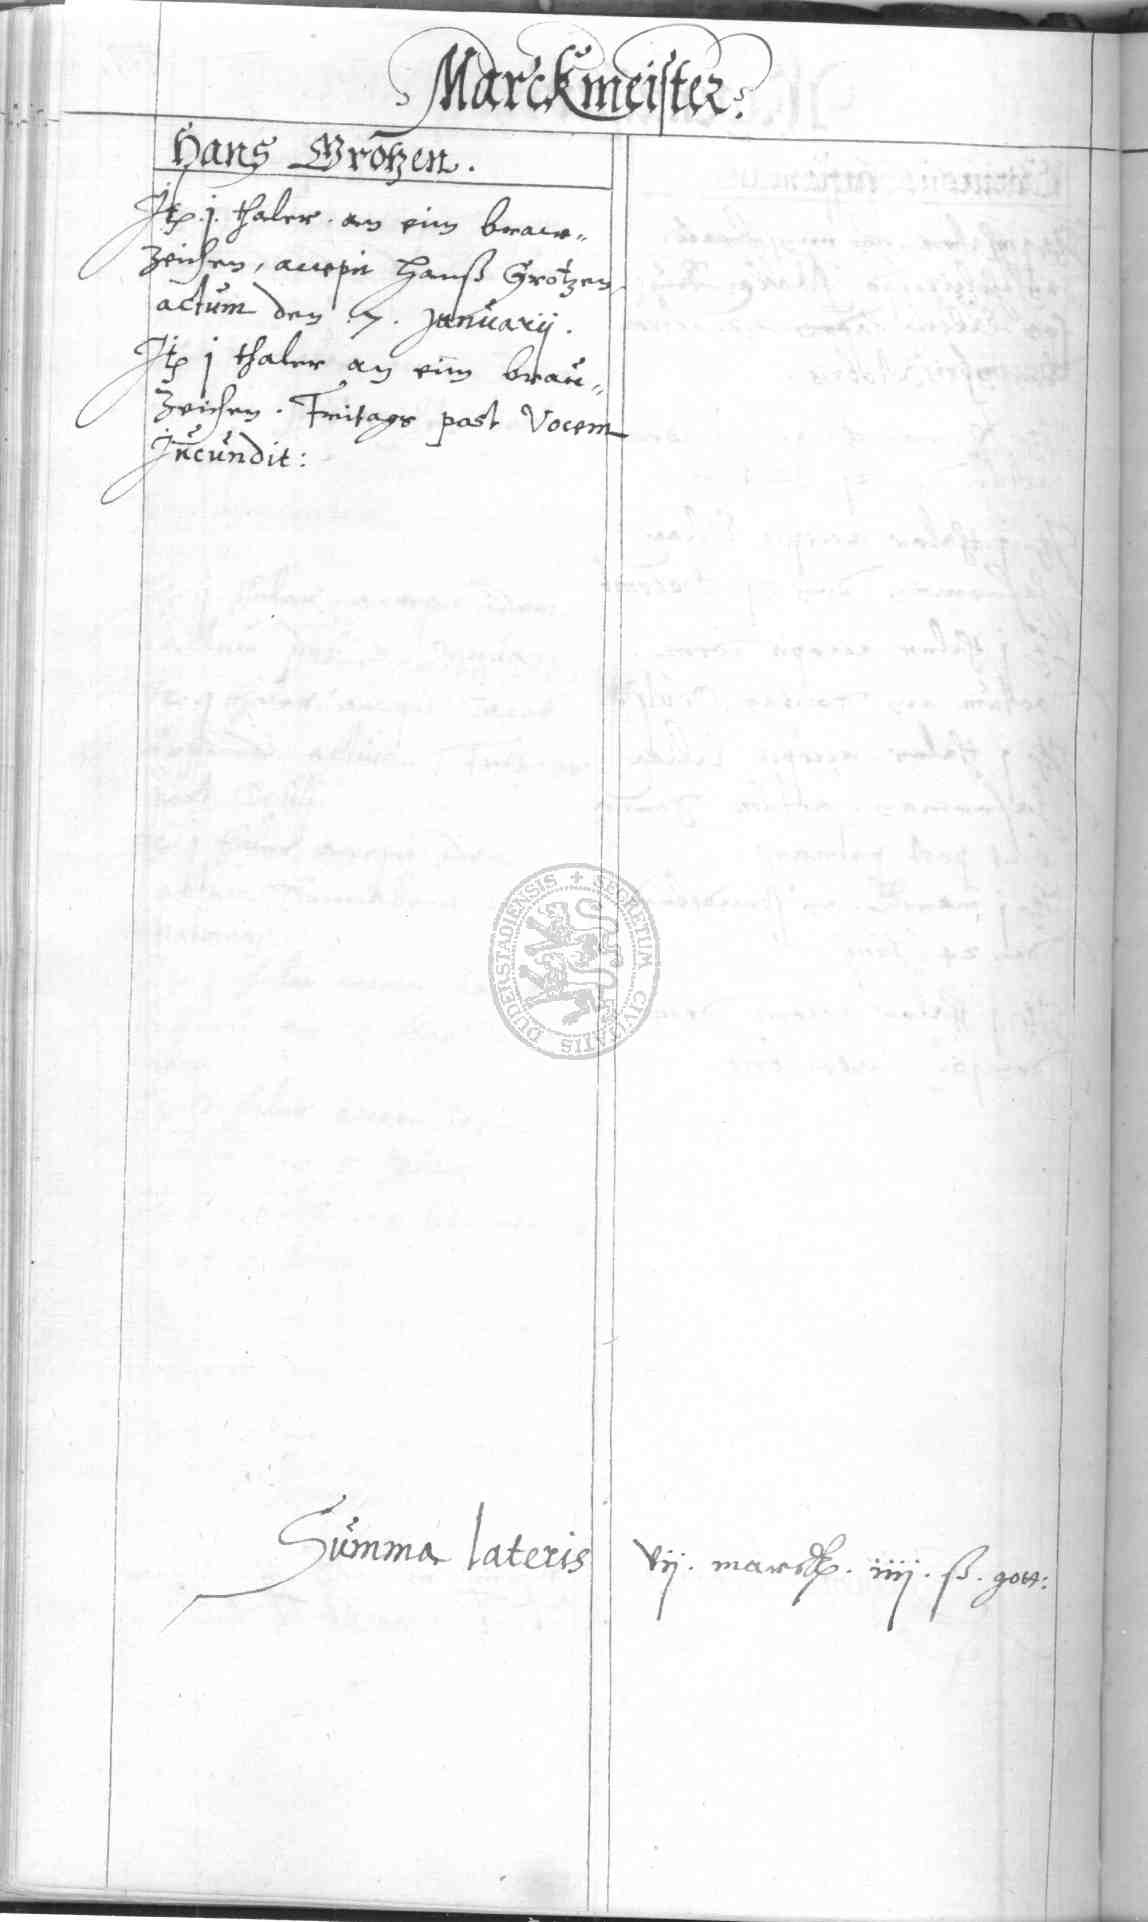 Marckmeister.
Hans Grotzen.
Itp. j. thaler. an eim braw-
zeichen, accepit Hanß Grotzen
actum den 7. Januarij.
Itp j thaler an eim brau-
zeichen. Freitags post Vocem
Jucundit:
SECRETUM CIVITATIS DUDERSTADIENSIS
Summa lateris vij. marck. iiij. ß. gott: